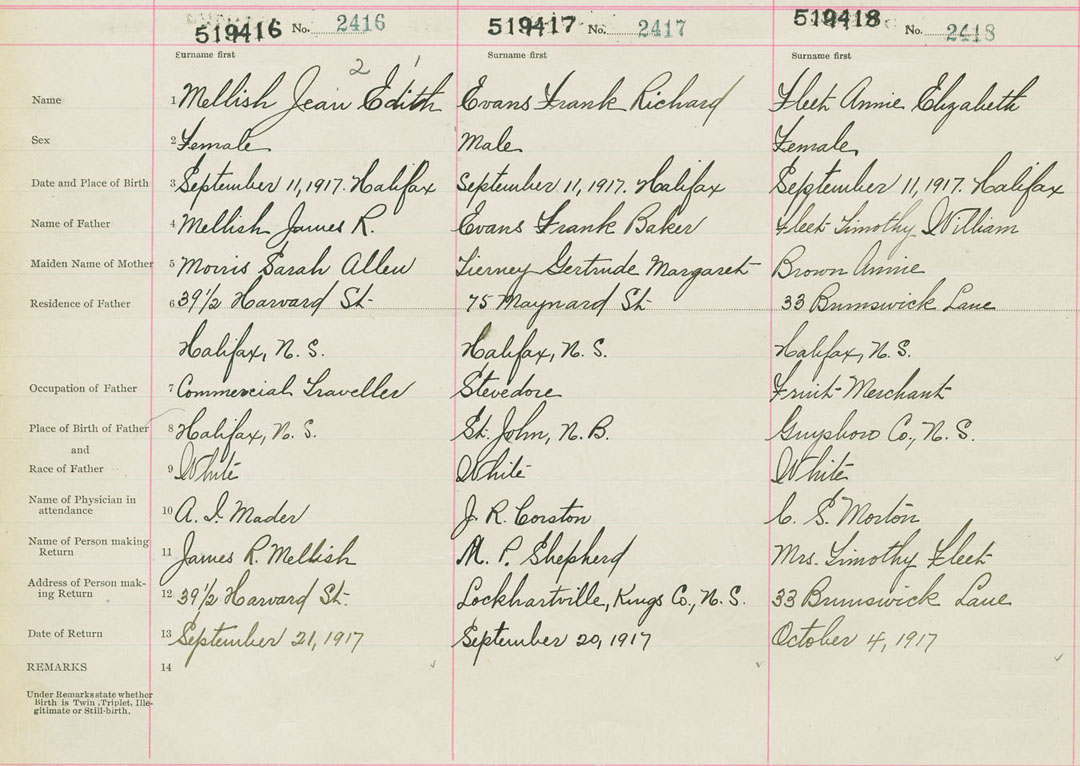 519416 No. 2416 519417 No. 2417 519418 No. 2418
Surname first Surname first Surname first
2 1
Name 1 Mellish Jean Edith Evans Frank Richard Fleet Annie Elizabeth
Sex 2 Female Male Female
Date and Place of Birth 3 September 11, 1917. Halifax September 11, 1917. Halifax September 11, 1917. Halifax
Name of Father 4 Mellish James R. Evans Frank Baker Fleet Timothy William
Maiden Name of Mother 5 Morris Sarah Allen Tierney Gertrude Margaret Brown Annie
Residence of Father 6 39 1/2 Harvard St. 75 Maynard St. 33 Brunswick Lane
Halifax, N. S. Halifax, N. S. Halifax, N. S.
Occupation of Father 7 Commercial Traveller Stevedore Fruit Merchant
Place of Birth of Father 8 Halifax, N. S. St. John, N. B. Guysboro Co., N. S.
and
Race of Father 9 White White White
Name of Physician in
attendance 10 A. I. Mader J. R. Corston C. S. Morton
Name of Person making
Return 11 James R. Mellish M. P. Shepherd Mrs. Timothy Fleet
Address of Person mak-
ing Return 12 39 1/2 Harvard St. Lockhartville, Kings Co., N. S. 33 Brunswick Lane
Date of Return 13 September 21, 1917 September 20, 1917 October 4, 1917
REMARKS 14
Under Remarks state whether
Birth is Twin, Triplet, Ille-
gitimate or Still-birth.